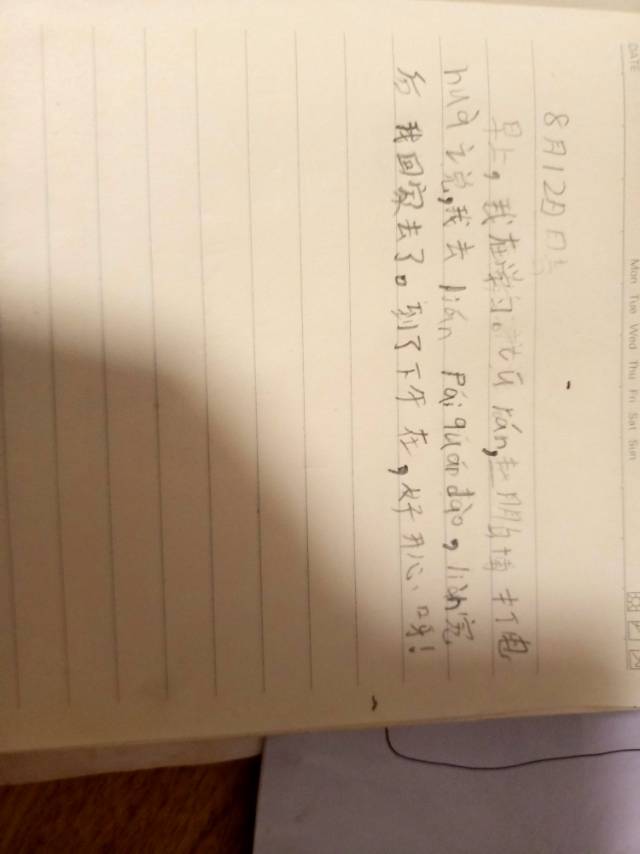 DATE
Mon Tue Wed Thu Fri Sat Sun
8月12日
早上,我在学习。tū rán,朋 打电
huà 说,我去 liàn pái quán dào,liàn完
我回家去了。到了下午在,好开心呀!